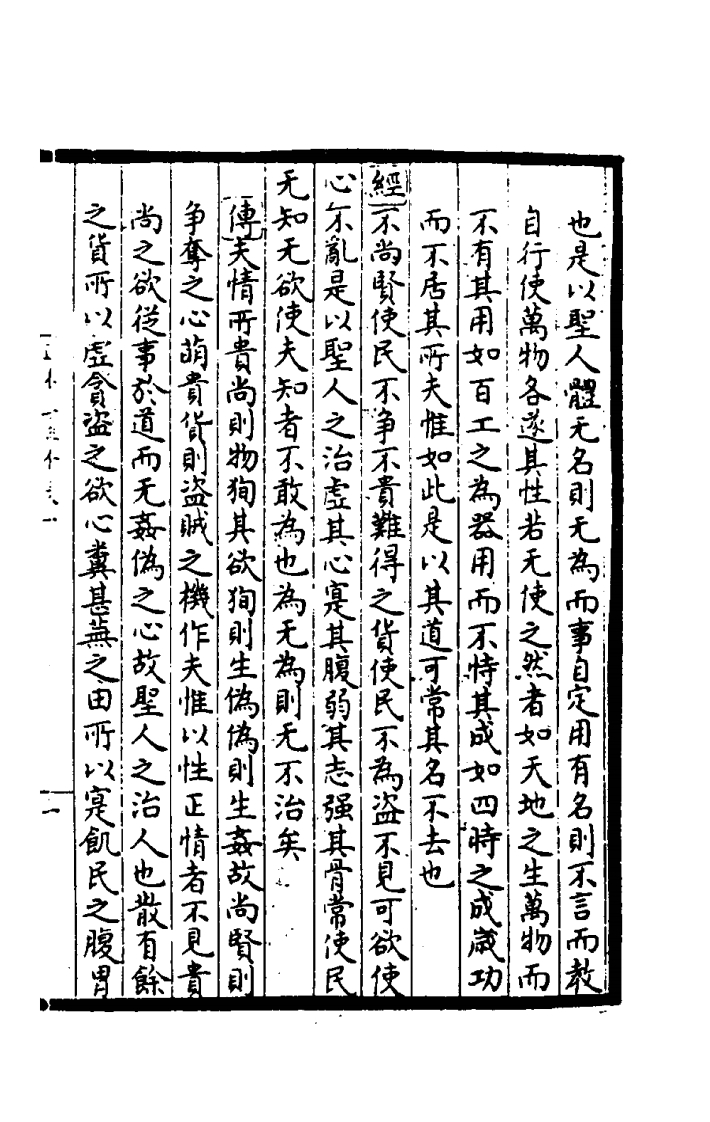 也是以聖人體无名則无為而事自定用有名則不言而教
自行使萬物各遂其性若无使之然者如天地之生萬物而
不有其用如百工之為器用而不恃其成如四時之成歲功
而不居其所夫惟如此是以其道可常其名不去也
經不尚賢使民不争不貴難得之貨使民不為盗不見可欲使
心不亂是以聖人之治虚其心寔其腹弱其志强其骨常使民
无知无欲使夫知者不敢為也為无為則无不治矣
傳夫情所貴尚則物狥其欲狥則生偽偽則生姦故尚賢則
争奪之心萌貴貨則盗賊之機作夫惟以性正情者不見貴
尚之欲從事於道而无姦偽之心故聖人之治人也散有餘
之貨所以虚貪盗之欲心糞甚蕪之田所以寔飢民之腹胃
一